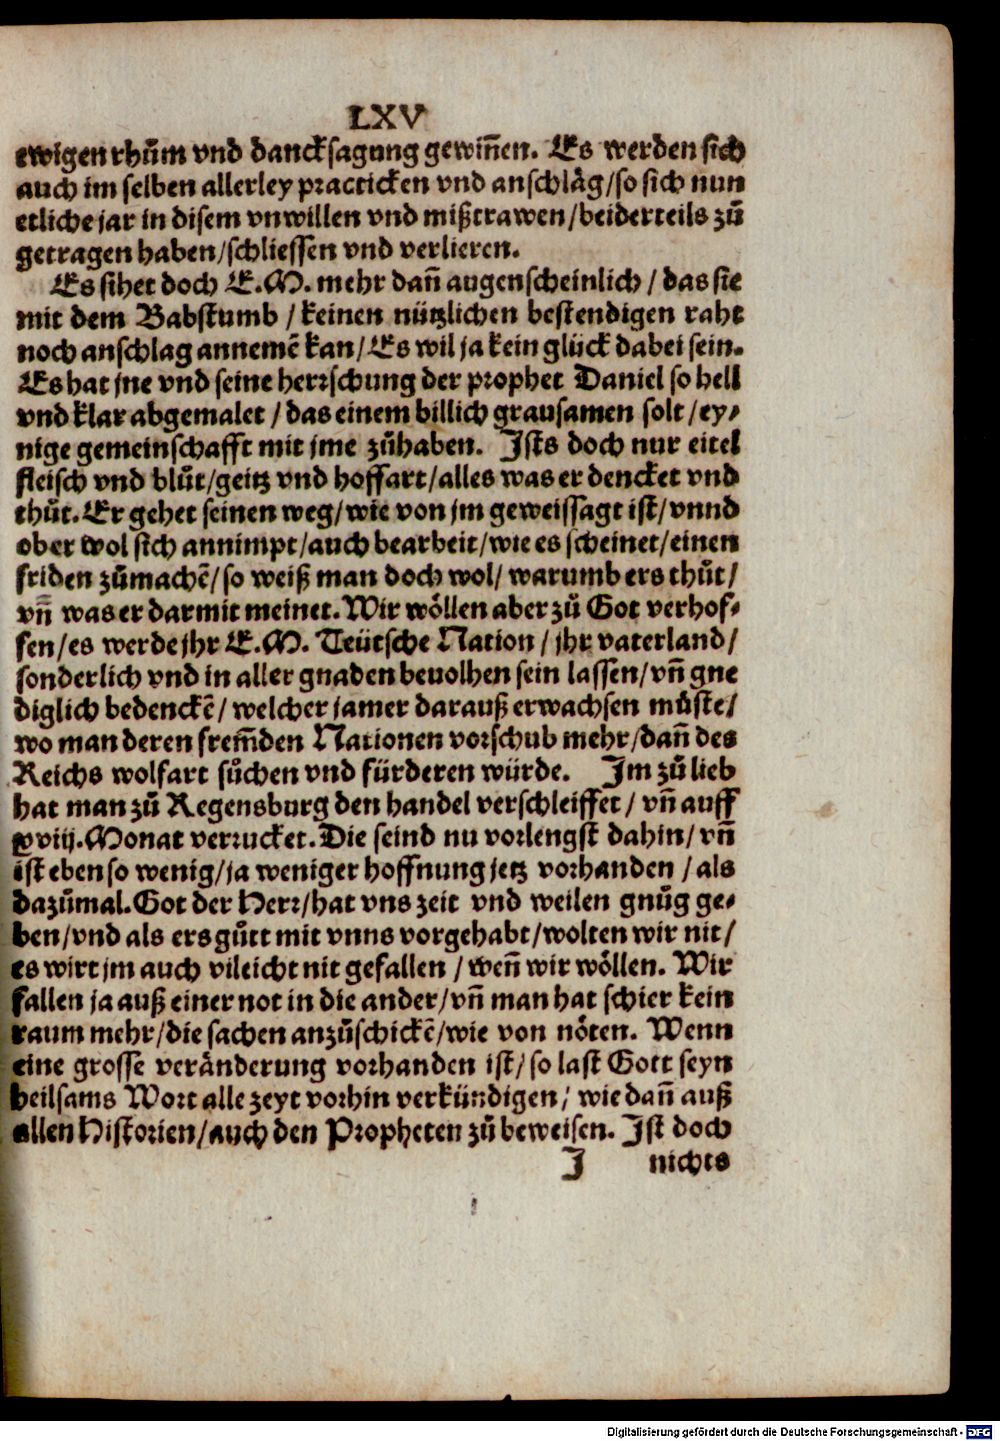 LXV
ewigen rhům vnd dancksagung gewiñen. Es werden sich
auch im selben allerley practicken vnd anschläg/so sich nun
etliche jar in disem vnwillen vnd mißtrawen/beiderteils zů
getragen haben/schliessen vnd verlieren.
Es sihet doch E.M. mehr dañ augenscheinlich/das sie
mit dem Babstumb/keinen nützlichen bestendigen raht
noch anschlag annemē kan/Es wil ja kein glück dabei sein.
Es hat jne vnd seine herrschung der prophet Daniel so hell
vnd klar abgemalet/das einem billich grausamen solt/ey-
nige gemeinschafft mit jme zůhaben. Ists doch nur eitel
fleisch vnd blůt/geitz vnd hoffart/alles was er dencket vnd
thůt. Er gehet seinen weg/wie von jm geweissagt ist/vnnd
ober wol sich annimpt/auch bearbeit/wie es scheinet/einen
friden zůmachē/so weiß man doch wol/warumb ers thůt/
vñ was er darmit meinet. Wir wöllen aber zů Got verhof-
fen/es werde jhr E.M. Teütsche Nation/jhr vaterland/
sonderlich vnd in aller gnaden beuolhen sein lassen/vñ gne
diglich bedenckē/welcher jamer darauß erwachsen můste/
wo man deren frem̃den Nationen vorschub mehr/dañ des
Reichs wolfart sůchen vnd fürderen würde. Im zů lieb
hat man zů Regensburg den handel verschleiffet/vñ auff
xviij. Monat verrucket. Die seind nu vorlengst dahin/vñ
ist eben so wenig/ja weniger hoffnung jetz vorhanden/als
dazůmal. Got der Herr/hat vns zeit vnd weilen gnůg ge-
ben/vnd als ers gůtt mit vnns vorgehabt/wolten wir nit/
es wirt jm auch vileicht nit gefallen/weñ wir wöllen. Wir
fallen ja auß einer not in die ander/vñ man hat schier kein
raum mehr/die sachen anzůschickē/wie von nöten. Wenn
eine grosse veränderung vorhanden ist/so last Gott seyn
heilsams Wort alle zeyt vorhin verkündigen/wie dañ auß
allen Historien/auch den Propheten zů beweisen. Ist doch
I nichts
Digitalisierung gefördert durch die Deutsche Forschungsgemeinschaft - DFG